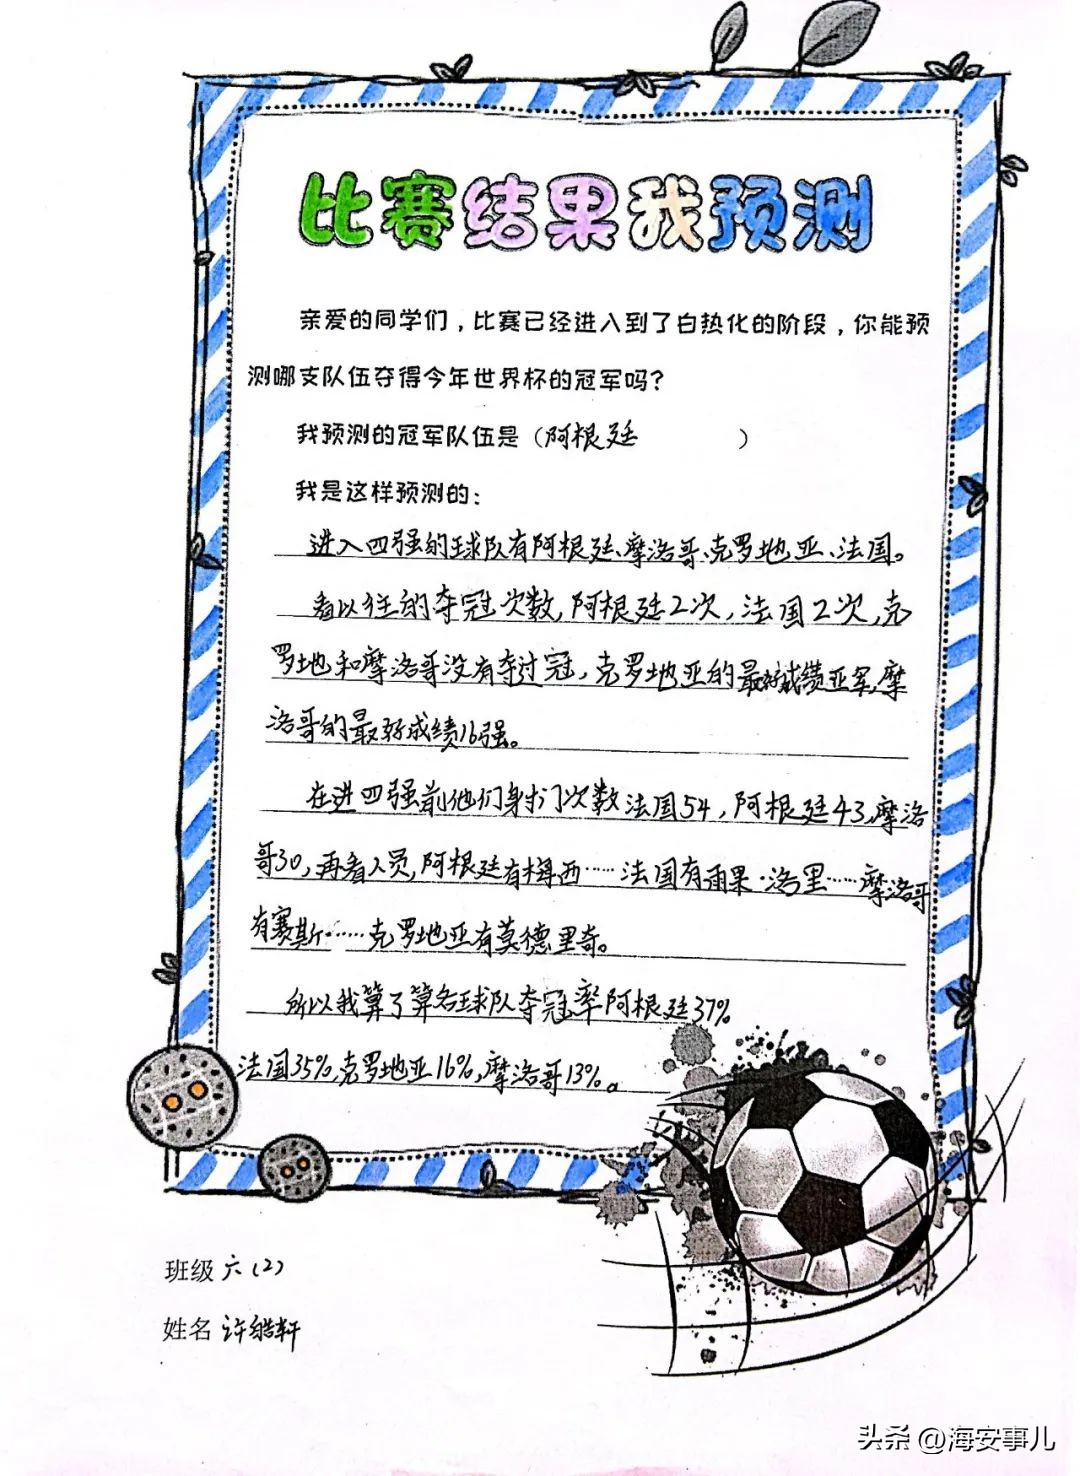 比赛结果我预测
亲爱的同学们，比赛已经进入到了白热化的阶段，你能预
测哪支队伍夺得今年世界杯的冠军吗？
我预测的冠军队伍是（阿根廷）
我是这样预测的：
进入四强的球队有阿根廷、摩洛哥、克罗地亚、法国。
看以往的夺冠次数，阿根廷2次，法国2次，克
罗地和摩洛哥没有夺过冠，克罗地亚的最好成绩亚军，摩
洛哥的最好成绩16强。
在进四强前他们射门次数法国54，阿根廷43，摩洛
哥30，再看人员，阿根廷有梅西……法国有雨果·洛里……摩洛哥
有赛斯……克罗地亚有莫德里奇。
所以我算了算各球队夺冠率阿根廷37%
法国35%，克罗地亚16%，摩洛哥13%。
班级 六（2）
姓名 许皓轩
头条 @海安事儿